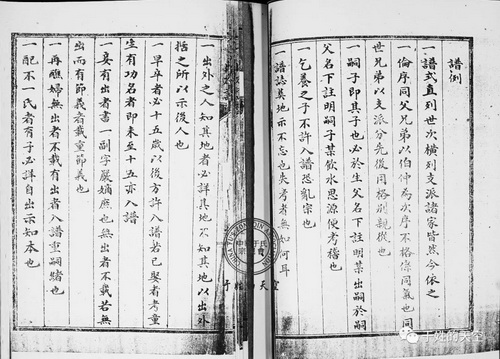 譜例
一譜式直列世次橫列支派諸家皆然今依之
一倫序同父兄弟以伯仲為次序不格條同氣也同
世兄弟以支派分先後用格別親從也
一嗣子即其子也必於生父名下註明某出嗣於嗣
父名下註明嗣子某飲水思源便考稽也
一乞養之子不許入譜恐亂宗也
一譜誌其地示不忘也失考者無如何耳
一出外之人知其地者必詳其地不知其地以出外
括之所以示後人也
一早卒者必十五歲以後方許入譜若已娶者考童
生有功名者即未至十五亦入譜
一妾有出者書一副字嚴嫡庶也無出者不載若無
出而有節義者載重節義也
一再醮婦無出者不載有出者入譜重嗣緒也
一配不一氏者有子必詳自出示知本也
于姓的天空